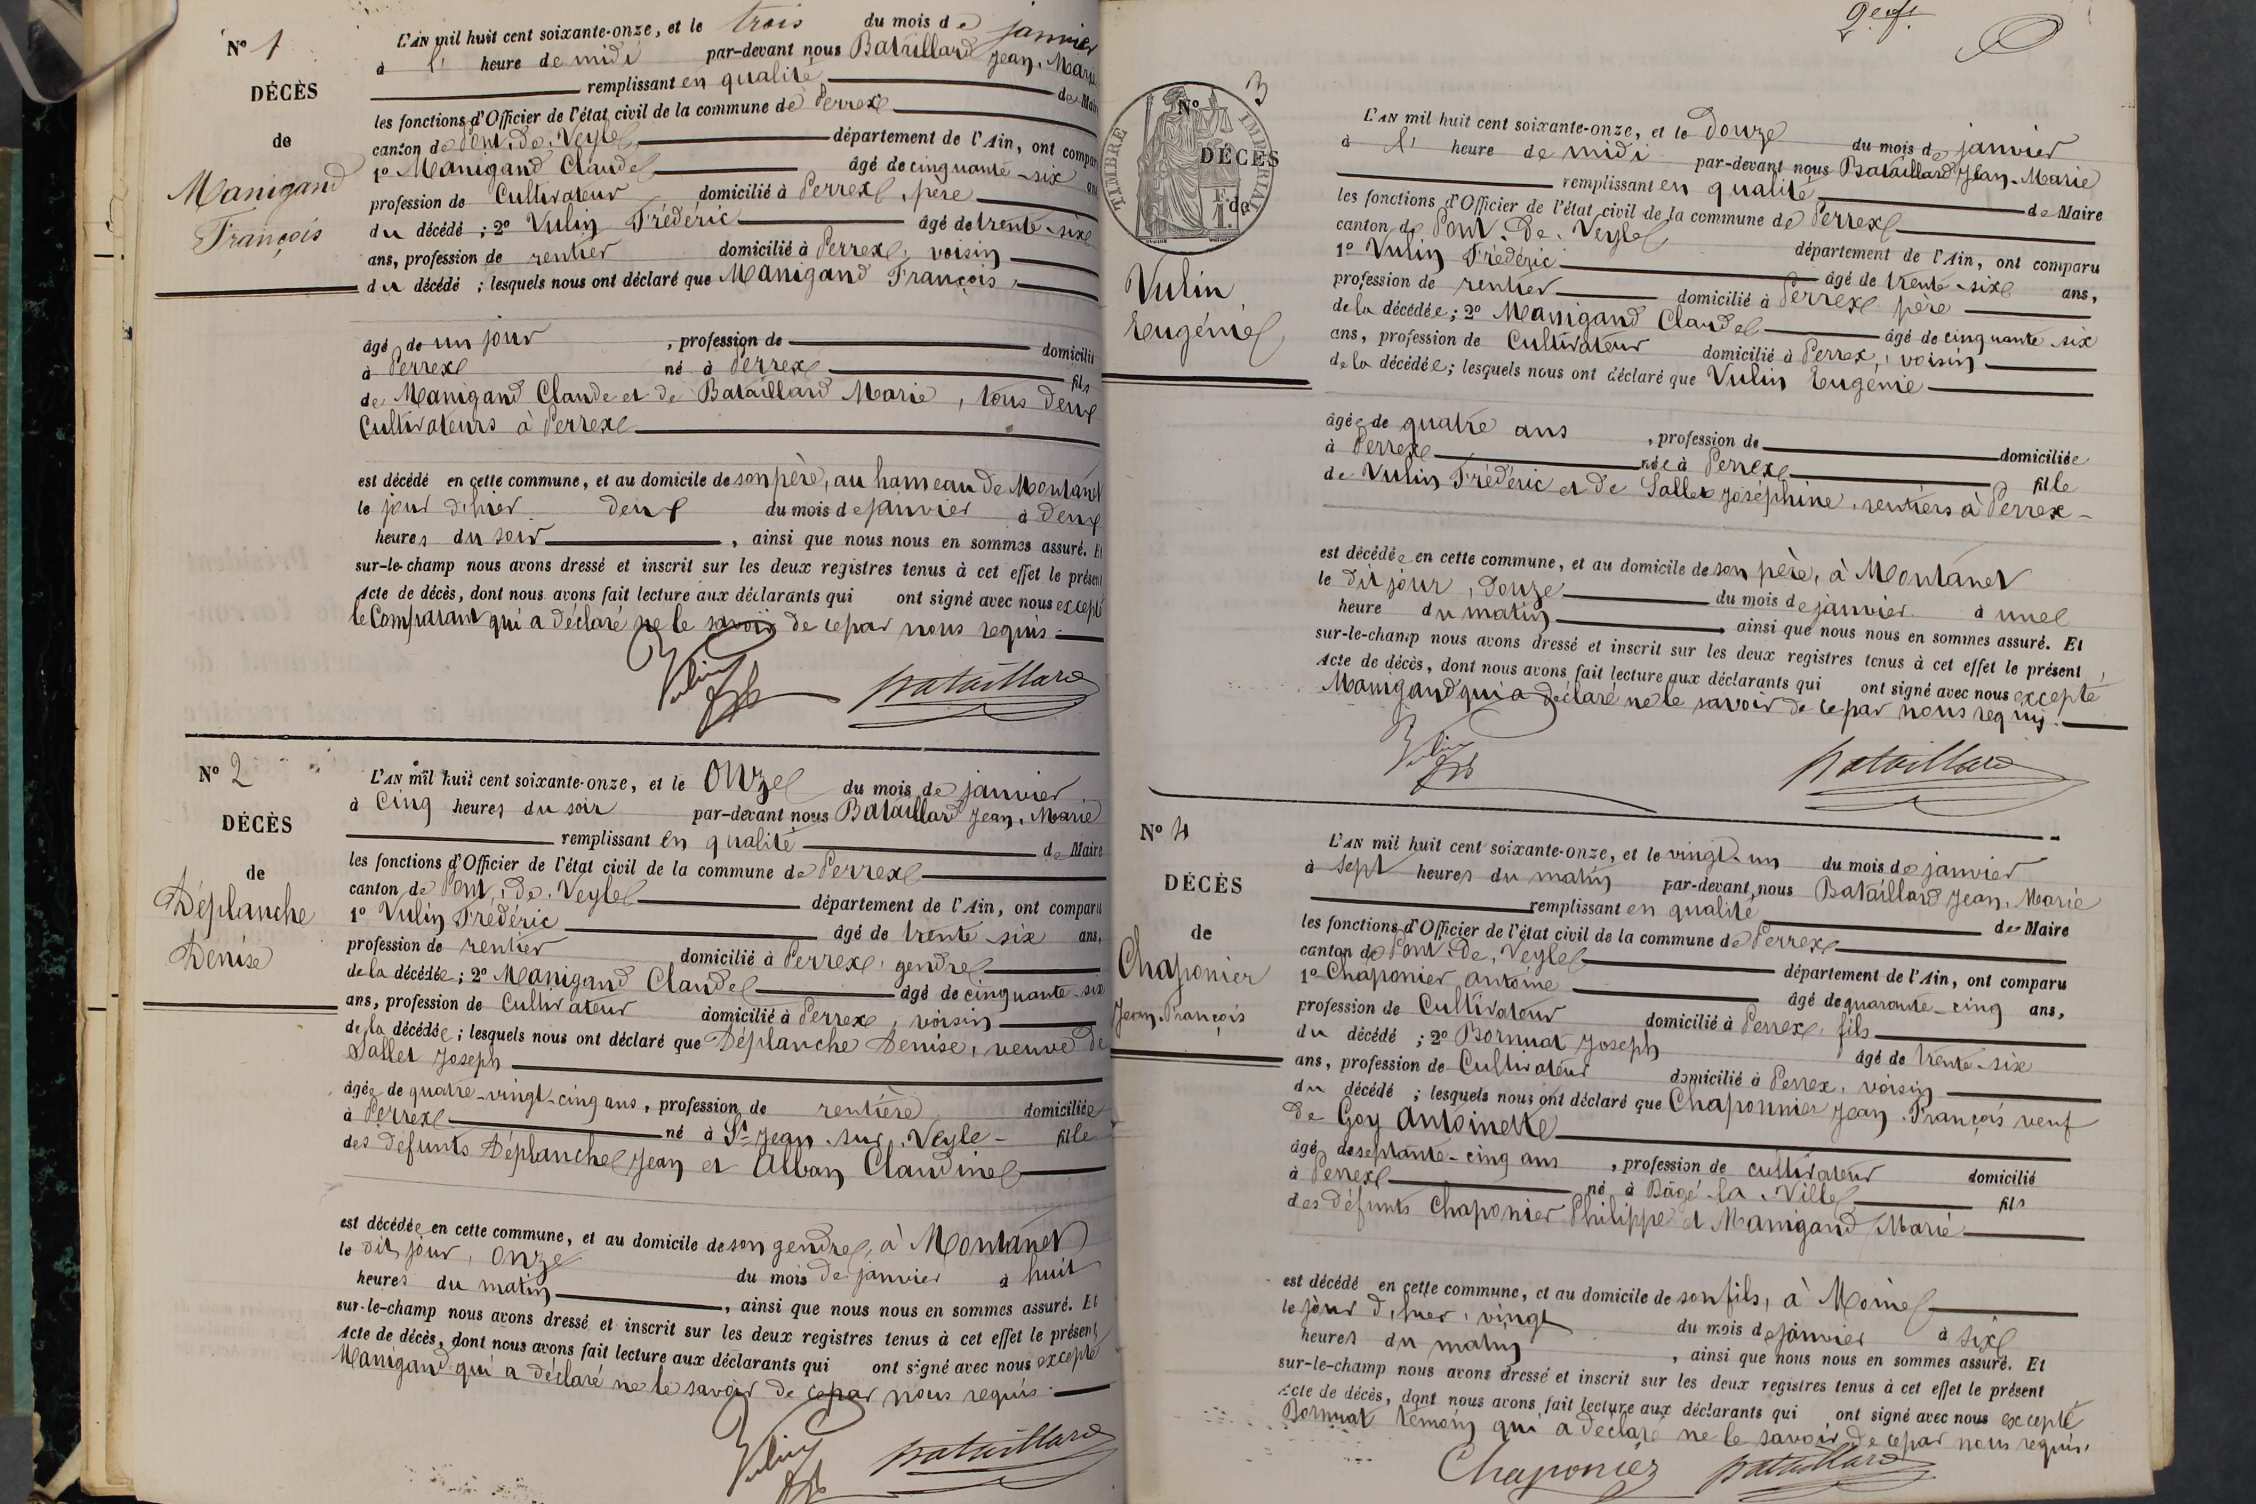 N° 1
DÉCÈS
de
Manigand
François
L'AN mil huit cent soixante-onze, et le trois du mois de janvier
à l' heure de midi par-devant nous Bataillard Jean-Marie
remplissant en qualité de Maire
les fonctions d'Officier de l'état civil de la commune de Perrex
canton de Pont-de-Veyle département de l'Ain, ont comparu
1° Manigand Claude âgé de cinquante-six ans
profession de Cultivateur domicilié à Perrex, père
du décédé ; 2° Vulin Frédéric âgé de trente-six
ans, profession de rentier domicilié à Perrex, voisin
du décédé ; lesquels nous ont déclaré que Manigand François,
âgé de un jour , profession de domicilié
à Perrex né à Perrex fils
de Manigand Claude et de Bataillard Marie, tous deux
Cultivateurs à Perrex
est décédé en cette commune, et au domicile de son père, au hameau de Montanet
le jour d'hier deux du mois de janvier à deux
heures du soir , ainsi que nous nous en sommes assuré. Et
sur-le-champ nous avons dressé et inscrit sur les deux registres tenus à cet effet le présent
Acte de décès, dont nous avons fait lecture aux déclarants qui ont signé avec nous excepté
le Comparant qui a déclaré ne le savoir de ce par nous requis.
Vulin Bataillard
N° 2
DÉCÈS
de
Déplanche
Denise
L'AN mil huit cent soixante-onze, et le Onze du mois de janvier
à Cinq heures du soir par-devant nous Bataillard Jean-Marie
remplissant en qualité de Maire
les fonctions d'Officier de l'état civil de la commune de Perrex
canton de Pont-de-Veyle département de l'Ain, ont comparu
1° Vulin Frédéric âgé de trente-six ans,
profession de rentier domicilié à Perrex, gendre
de la décédée ; 2° Manigand Claude âgé de cinquante-six
ans, profession de Cultivateur domicilié à Perrex, voisin
de la décédée ; lesquels nous ont déclaré que Déplanche Denise, veuve de
Sallet Joseph
âgée de quatre-vingt-cinq ans, profession de rentière domiciliée
à Perrex né à St Jean-sur-Veyle - fille
des défunts Déplanche Jean et Alban Claudine
est décédée en cette commune, et au domicile de son gendre, à Montanet
le dit jour, onze du mois de janvier à huit
heures du matin , ainsi que nous nous en sommes assuré. Et
sur-le-champ nous avons dressé et inscrit sur les deux registres tenus à cet effet le présent
Acte de décès, dont nous avons fait lecture aux déclarants qui ont signé avec nous excepté
Manigand qui a déclaré ne le savoir de ce par nous requis.
Vulin Bataillard
TIMBRE IMPÉRIAL
N° 3
DÉCÈS
de
Vulin
Eugénie
L'AN mil huit cent soixante-onze, et le Douze du mois de janvier
à l' heure de midi par-devant nous Bataillard Jean-Marie
remplissant en qualité de Maire
les fonctions d'Officier de l'état civil de la commune de Perrex
canton de Pont-de-Veyle département de l'Ain, ont comparu
1° Vulin Frédéric âgé de trente-six ans,
profession de rentier domicilié à Perrex père
de la décédée ; 2° Manigand Claude âgé de cinquante six
ans, profession de Cultivateur domicilié à Perrex, voisin
de la décédée ; lesquels nous ont déclaré que Vulin Eugénie
âgée de quatre ans , profession de domiciliée
à Perrex née à Perrex fille
de Vulin Frédéric et de Sallet Joséphine, rentiers à Perrex -
est décédée en cette commune, et au domicile de son père, à Montanet
le dit jour, douze du mois de janvier à une
heure du matin ainsi que nous nous en sommes assuré. Et
sur-le-champ nous avons dressé et inscrit sur les deux registres tenus à cet effet le présent
Acte de décès, dont nous avons fait lecture aux déclarants qui ont signé avec nous excepté
Manigand qui a déclaré ne le savoir de ce par nous requis.
Vulin Bataillard
N° 4
DÉCÈS
de
Chaponier
Jean-François
L'AN mil huit cent soixante-onze, et le vingt-un du mois de janvier
à sept heures du matin par-devant nous Bataillard Jean-Marie
remplissant en qualité de Maire
les fonctions d'Officier de l'état civil de la commune de Perrex
canton de Pont-de-Veyle département de l'Ain, ont comparu
1° Chaponier Antoine âgé de quarante-cinq ans,
profession de Cultivateur domicilié à Perrex, fils
du décédé ; 2° Bornuat Joseph âgé de trente-six
ans, profession de Cultivateur domicilié à Perrex, voisin
du décédé ; lesquels nous ont déclaré que Chaponnier Jean-François veuf
de Goy Antoinette
âgé de septante-cinq ans , profession de cultivateur domicilié
à Perrex né à Bâgé-la-Ville fils
des défunts Chaponier Philippe et Manigand Marie
est décédé en cette commune, et au domicile de son fils, à
le jour d'hier, vingt du mois de janvier à six
heures du matin , ainsi que nous nous en sommes assuré. Et
sur-le-champ nous avons dressé et inscrit sur les deux registres tenus à cet effet le présent
Acte de décès, dont nous avons fait lecture aux déclarants qui ont signé avec nous excepté
Bornuat témoin qui a déclaré ne le savoir de ce par nous requis.
Chaponier Bataillard